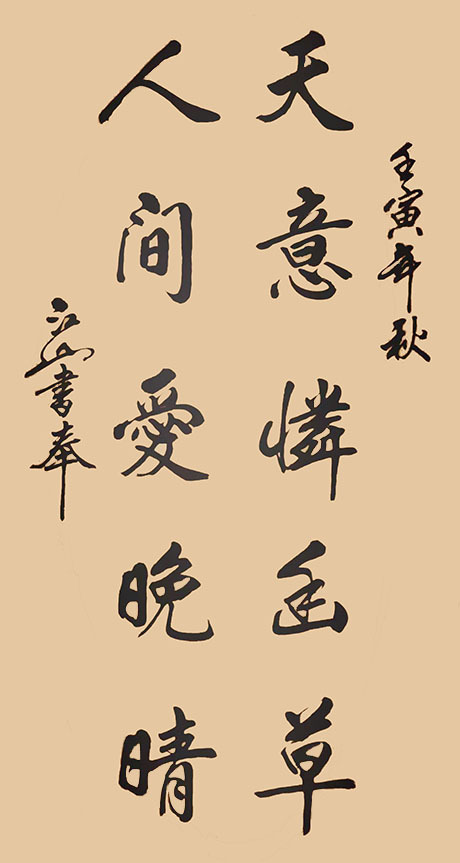 壬寅年秋
天意憐幽草
人間愛晚晴
江山書奉